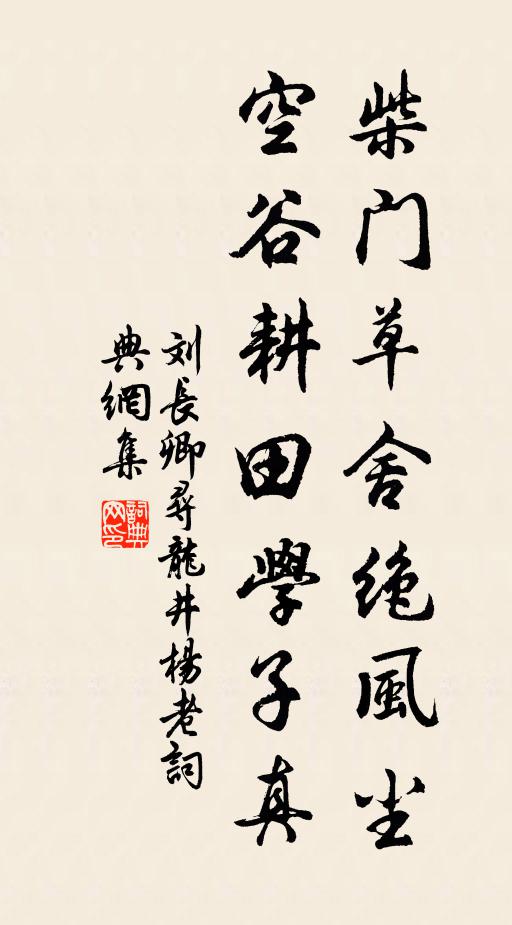 柴门草舍绝風尘
空谷耕田學子真
刘長卿尋龍井楊老詞
典網集
詞典
网印